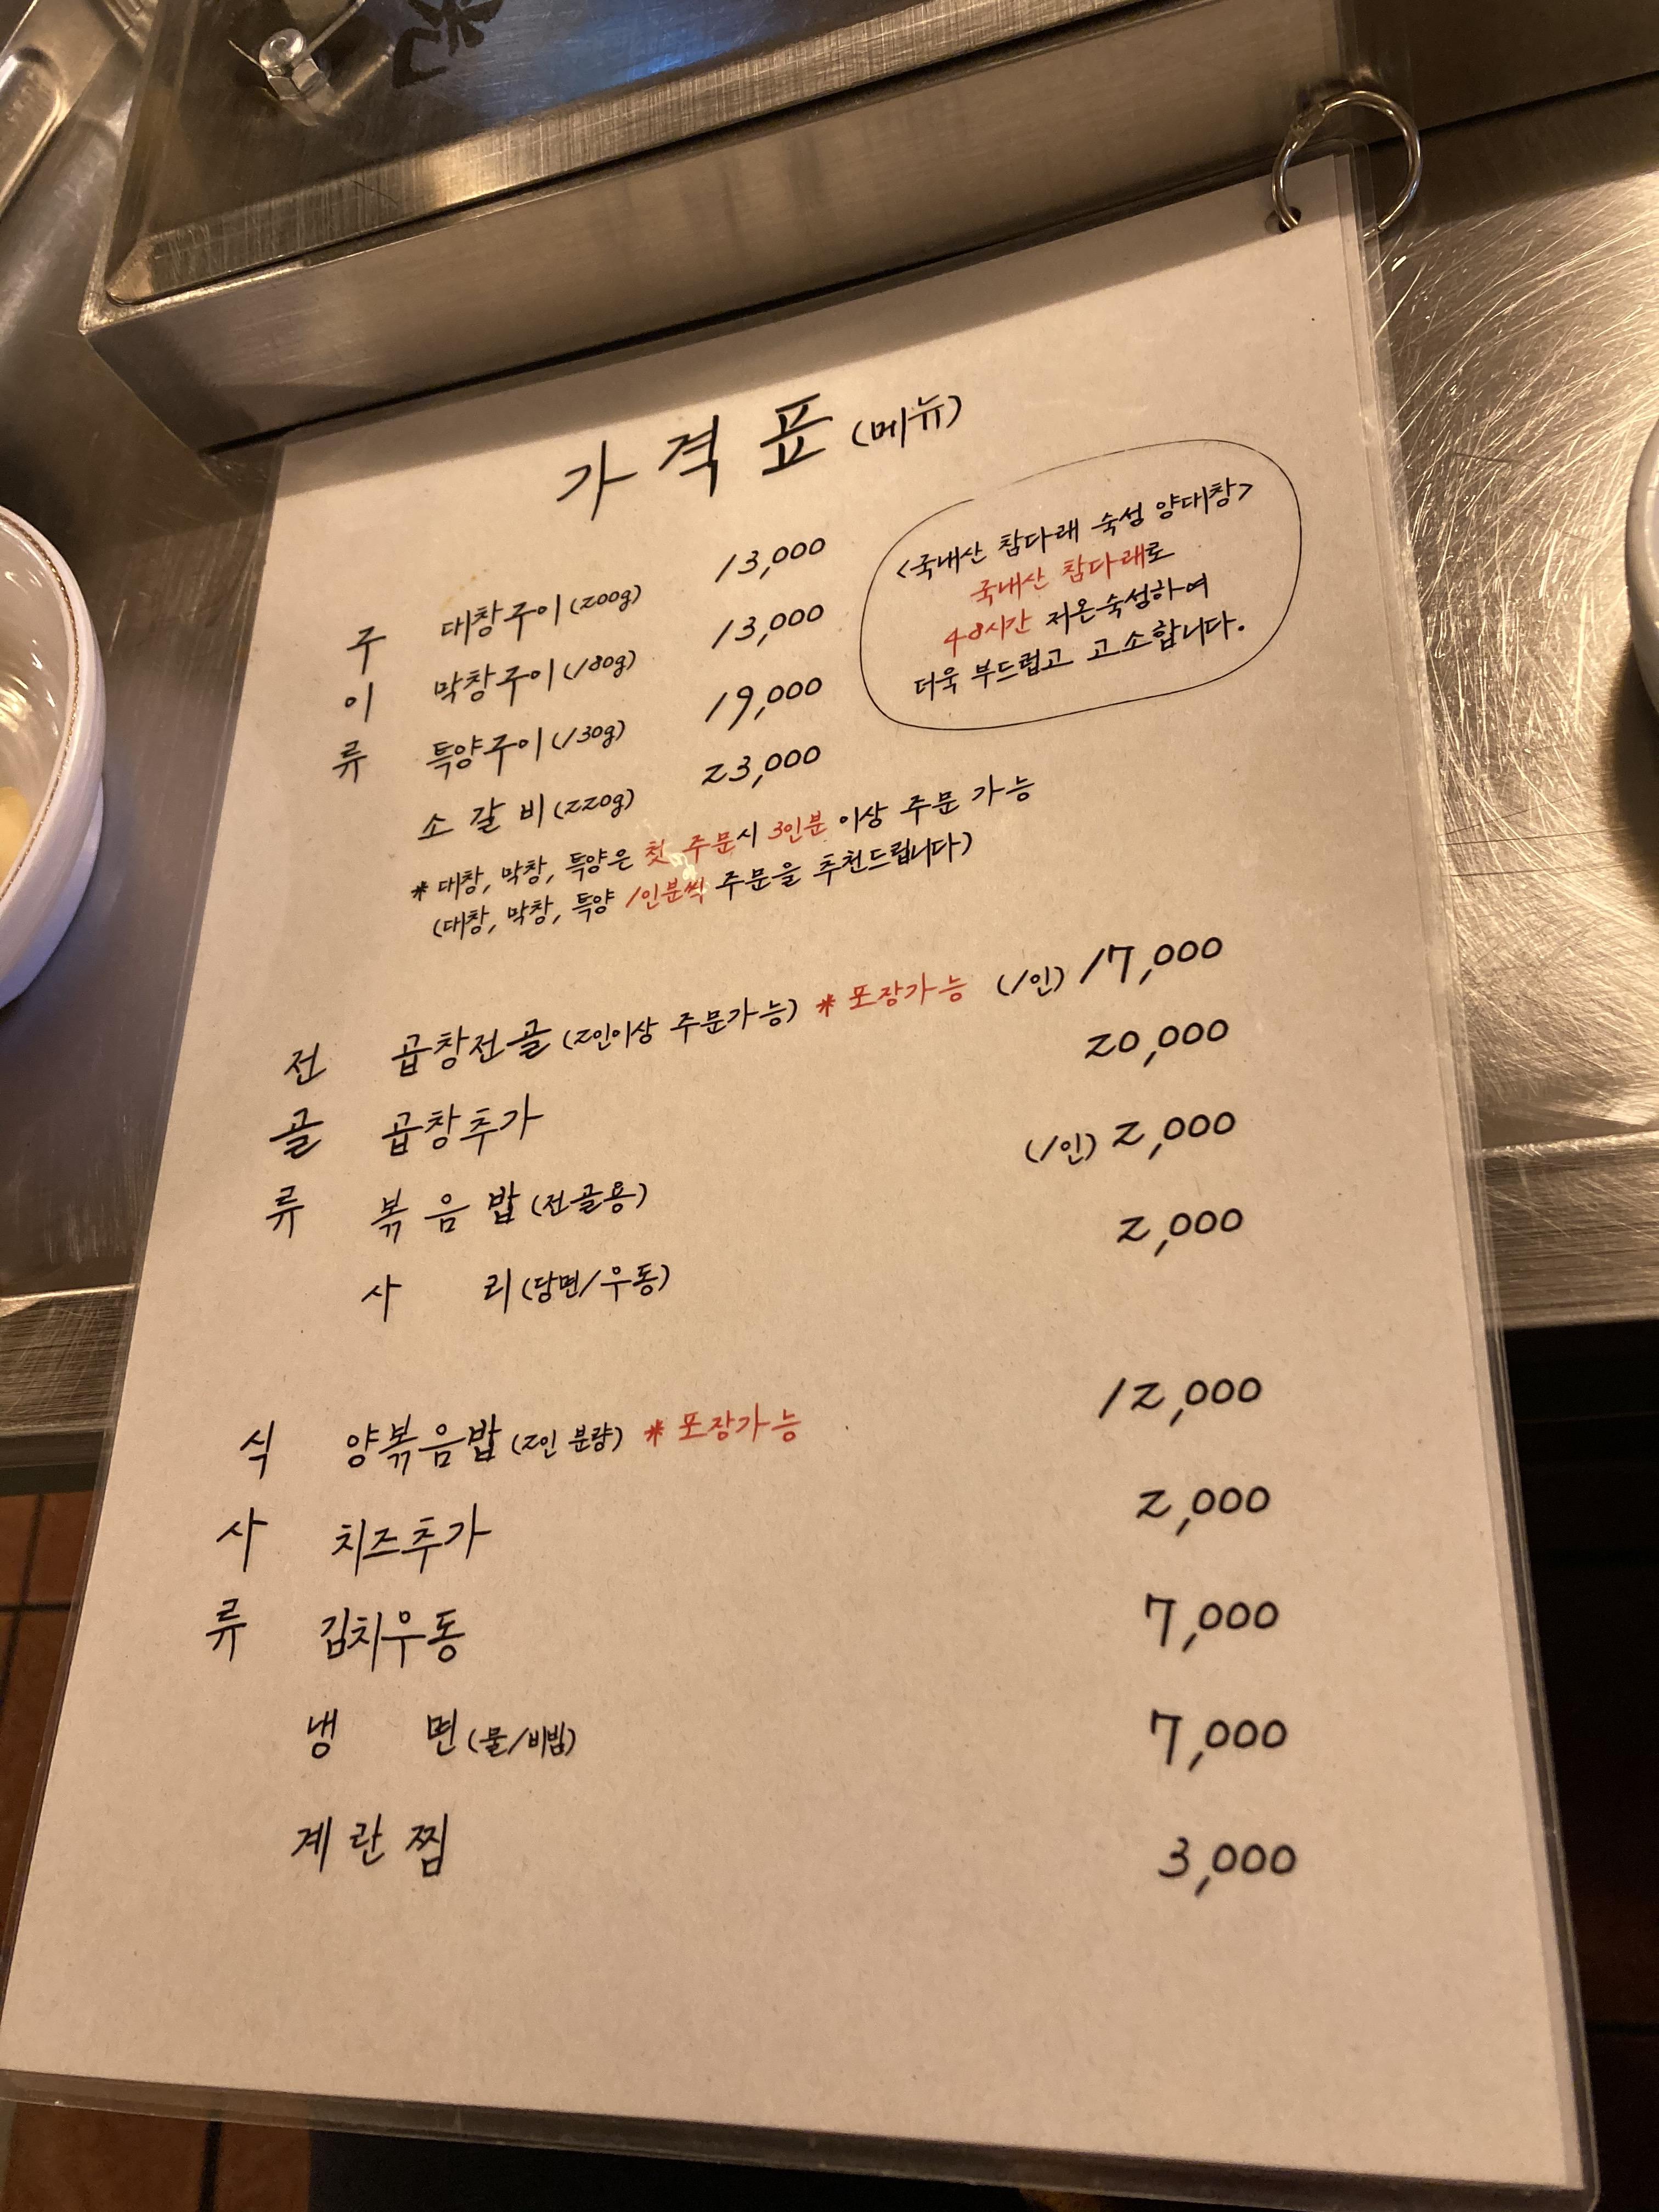 가격표 (메뉴)
<국내산 참다래 숙성 양대창>
국내산 참다래로
48시간 저온숙성하여
더욱 부드럽고 고소합니다.
구이류
대창구이 (200g) 13,000
막창구이 (180g) 13,000
특양구이 (130g) 19,000
소갈비 (220g) 23,000
* 대창, 막창, 특양은 첫 주문시 3인분 이상 주문 가능
(대창, 막창, 특양 1인분씩 주문을 추천드립니다)
전골류
곱창전골 (2인이상 주문가능) * 포장가능 (1인) 17,000
곱창추가 20,000
볶음밥 (전골용) (1인) 2,000
사리 (당면/우동) 2,000
식사류
양볶음밥 (2인 분량) * 포장가능 12,000
치즈추가 2,000
김치우동 7,000
냉면 (물/비빔) 7,000
계란찜 3,000